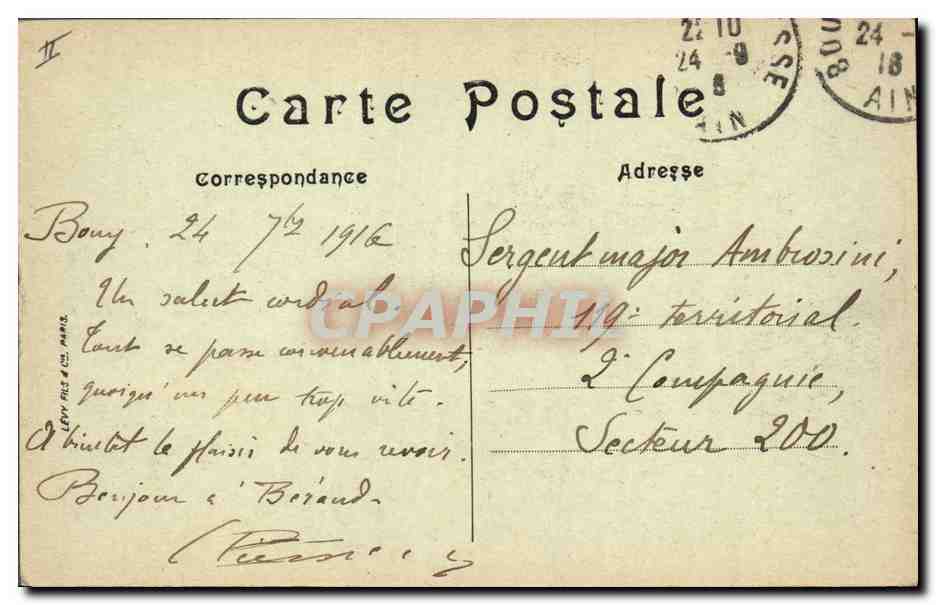 II
22 10
24 -9
AIN
24 -
16
AIN
Carte Postale
Correspondance
Adresse
Bourg. 24 7bre 1916
Un salut cordial.
Tout se passe convenablement,
quoiqu'un peu trop vite.
A bientot le plaisir de vous revoir.
Bonjour à Béraud.
Sergent major Ambrosini,
119e territorial.
2e Compagnie,
Secteur 200.
LEVY FILS & Cie PARIS.
CPAPHIL